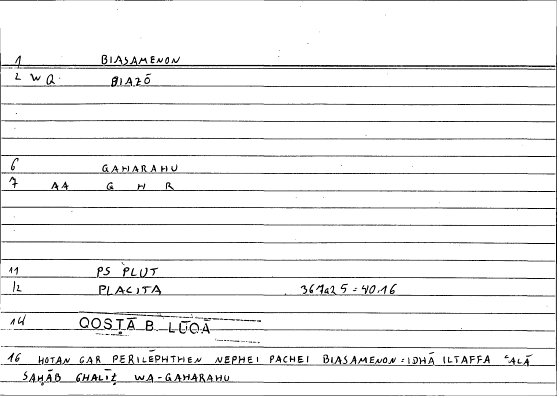 1 BIASAMENON
2 WQ. BIAZŌ
6 GAHARAHU
7 AA G H R
11 PS PLUT
12 PLACITA 367a25 = 40.16
14 QOSṬĀ B. LŪQĀ
16 HOTAN GAR PERILĒPHTHEN NEPHEI PACHEI BIASAMENON = IDHĀ ILTAFFA ʿALĀ
SAḤĀB GHALĪẒ WA-GAHARAHU